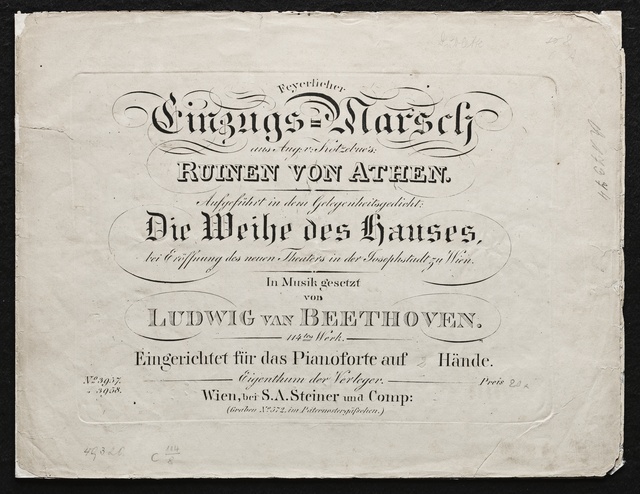 Feyerlicher
Einzugs=Marsch
aus Aug. v. Kotzebue's:
RUINEN VON ATHEN.
Aufgeführt in dem Gelegenheitsgedicht:
Die Weihe des Hauses,
bei Eröffnung des neuen Theaters in der Josephstadt zu Wien.
In Musik gesetzt
von
LUDWIG VAN BEETHOVEN.
114tes Werk.
Eingerichtet für das Pianoforte auf 2 Hände.
No. 3957.
" 3958.
Eigenthum der Verleger.
Preis
Wien, bei S.A. Steiner und Comp:
(Graben No. 572. im Paternostergäßchen.)
C 114/6